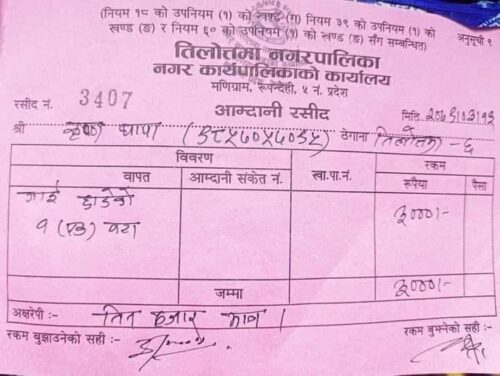 (नियम १८ को उपनियम (१) को खण्ड (ग) नियम ३९ को उपनियम (१) को
खण्ड (ङ) र नियम ६० को उपनियम (१) को खण्ड (ङ) सँग सम्बन्धित)
अनुसूची ९
तिलोत्तमा नगरपालिका
नगर कार्यपालिकाको कार्यालय
मणिग्राम, रूपन्देही, ५ नं. प्रदेश
रसीद नं. 3407
आम्दानी रसीद
मिति
श्री थापा ठेगाना तिलोत्तमा - ६
विवरण रकम
वापत आम्दानी संकेत नं. ख्वा.पा.नं. रूपैया पैसा
गाई छाडेको ३०००।-
१ (एक) वटा
जम्मा ३०००।-
अक्षरेपी :- तिन हजार मात्र ।
रकम बुझाउनेको सही :- रकम बुझ्नेको सही :-